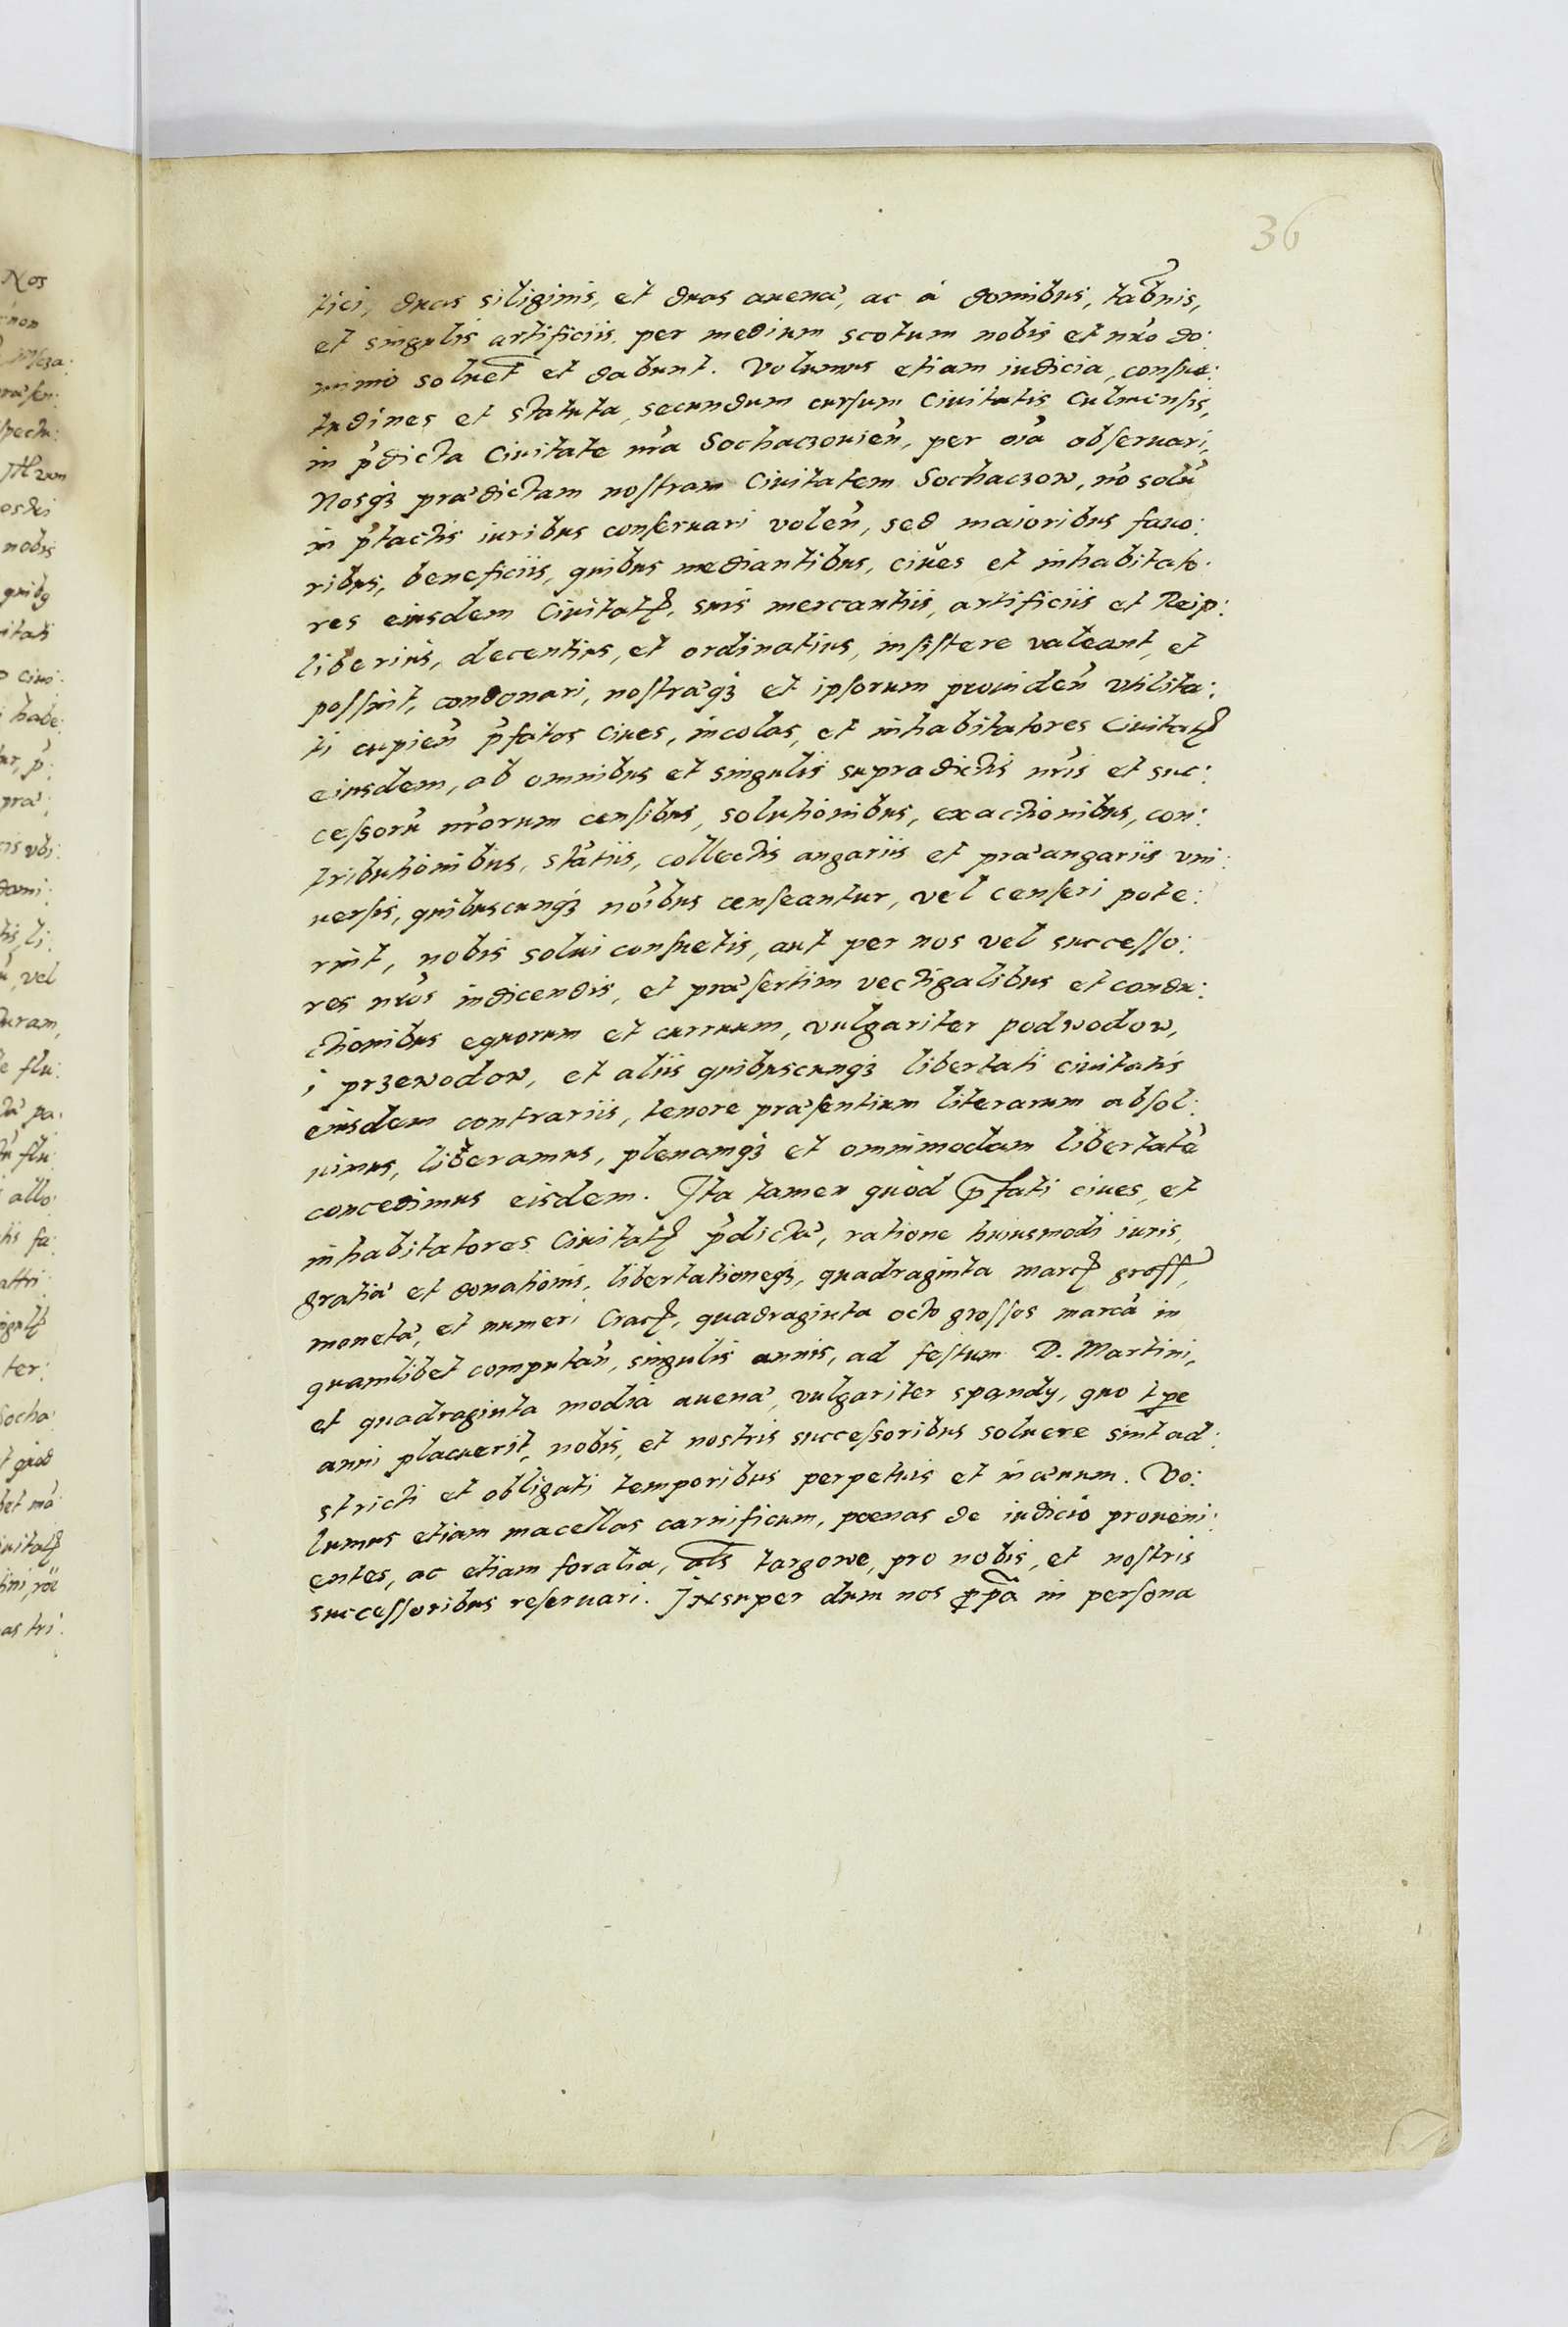 36
tici, duas siliginis, et duas auenæ, ac à domibus, tab̃nis,
et singulis artificiis per medium scotum nobis et nr̃o do:
minio soluet̃ et dabunt. Volumus etiam iudicia, consue:
tudines et statuta, secundum cursum Ciuitatis Culmensis,
in p̃dicta Ciuitate nr̃a Sochaczouien̄, per oĩa obseruari,
Nosqʒ prædictam nostram Ciuitatem Sochaczow, nõ solũ
in p̃tactis iuribus conseruari volen̄, sed maioribus fauo:
ribus, beneficiis, quibus mediantibus, ciues et inhabitato:
res eiusdem Ciuitatꝭ, suis mercantiis, artificiis et Reip:
liberius, decentius, et ordinatius, insistere valeant, et
possint, condonari, nostræqʒ et ipsorum prouiden̄ vtilita:
ti cupien̄ p̃fatos Ciues, incolas, et inhabitatores Ciuitatꝭ
eiusdem, ab omnibus et singulis supradictis nr̃is et suc:
cessorũ nr̃orum censibus, solutionibus, exactionibus, con:
tributionibus, statiis, collectis angariis et præangariis vni:
uersis, quibuscunqʒ noĩbus censeantur, vel censeri pote:
rint, nobis solui consuetis, aut per nos vel successo:
res nr̃os indicendis, et præsertim vectigalibus et condu:
ctionibus equorum et curruum, vulgariter podwodow,
i przewodow, et aliis quibuscunqʒ libertati ciuitatis
eiusdem contrariis, tenore præsentium literarum absol:
uimus, liberamus, plenamqʒ et omnimodam libertatẽ
concedimus eisdem. Ita tamen quòd p̃fati ciues, et
inhabitatores Ciuitatꝭ p̃dictæ, ratione huiusmodi iuris,
gratiæ et donationis, libertationeqʒ, quadraginta marcꝭ gross,
monetæ, et numeri Cracꝭ, quadraginta octo grossos marcã in
quamlibet computan̄, singulis annis, ad festum D. Martini,
et quadraginta modia auenæ, vulgariter spandy, quo tp̱e
anni placuerit, nobis, et nostris successoribus soluere sint ad:
stricti et obligati temporibus perpetuis et in æuum. Vo:
lumus etiam macellas carnificum, poenas de iudicio proueni:
entes, ac etiam foralia, al̃s targowe, pro nobis, et nostris
successoribus reseruari. Insuper dum nos ꝓp̃a in persona